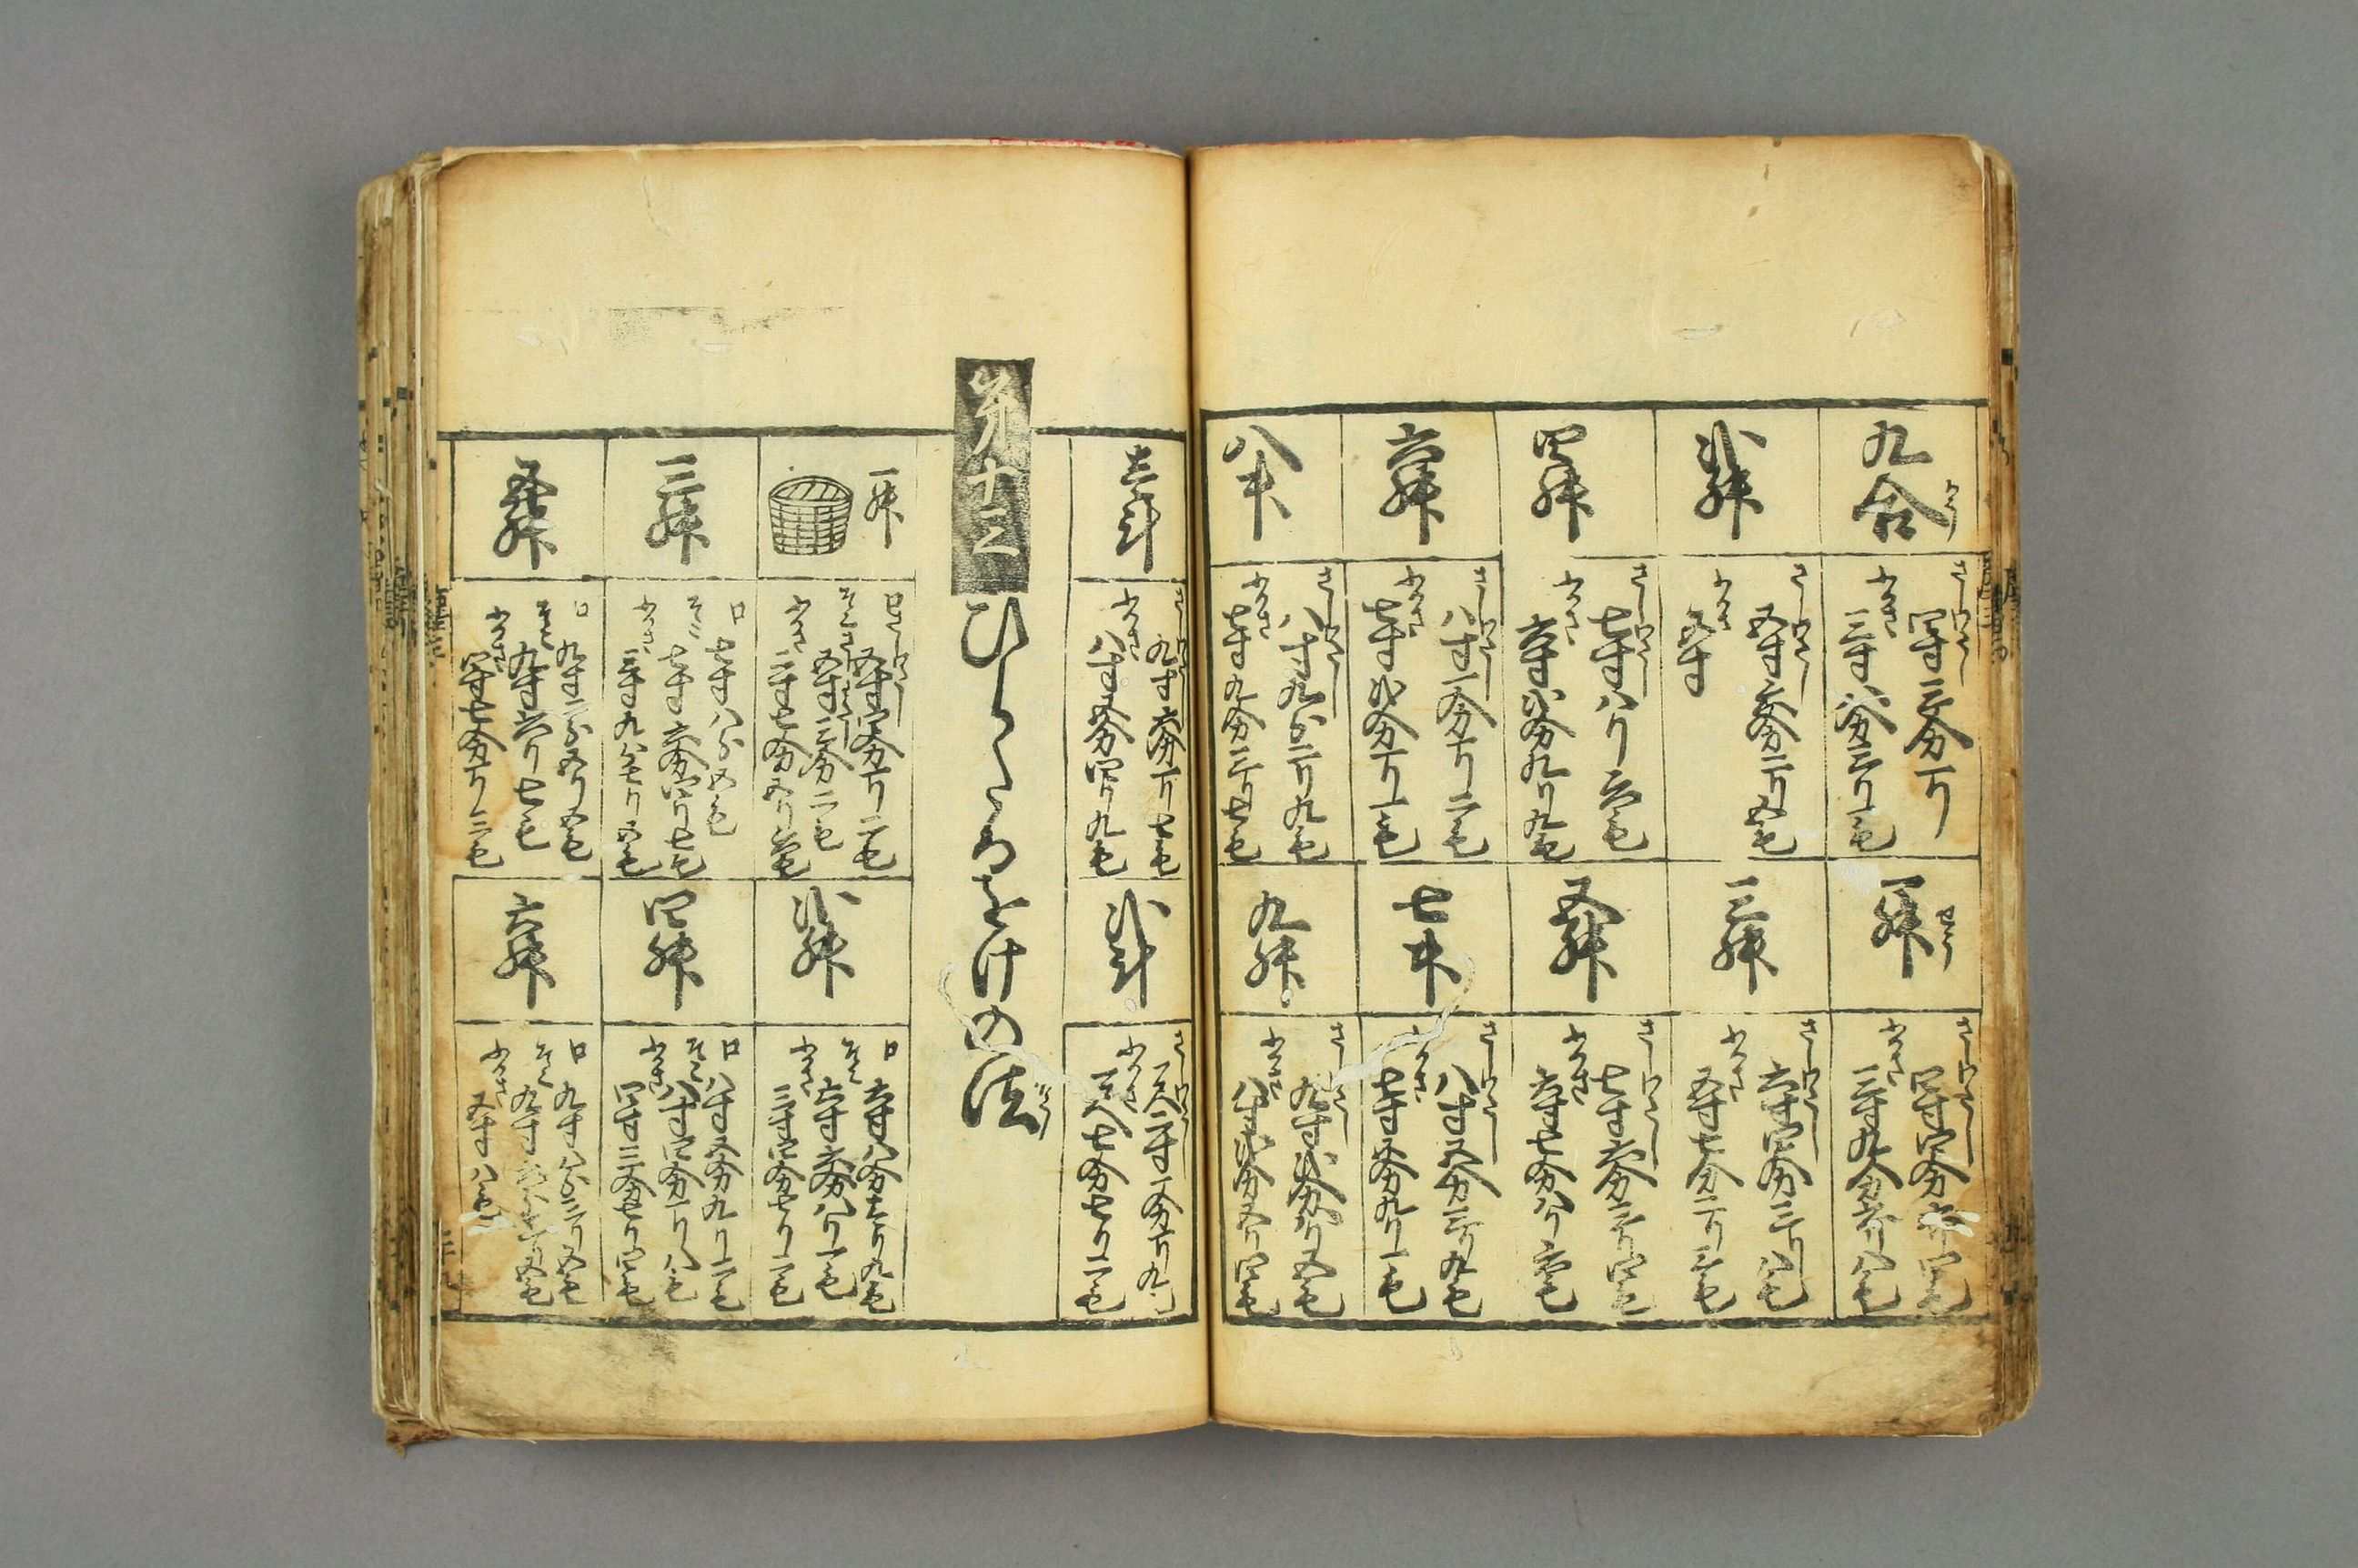 九合
さしわたし
四寸三分一り
ふかさ
三寸八分三り一毛
一升
さしわたし
四寸四分
ふかさ
三寸九分
八毛
弐升
さしわたし
五寸
二り五毛
ふかさ
五寸
三升
さしわたし
六寸四分三り八毛
ふかさ
五寸七分二り三毛
四升
さしわたし
七寸八り六毛
ふかさ
六寸弐分九り九毛
五升
さしわたし
七寸六分三り四毛
ふかさ
六寸七分八り六毛
六升
さしわたし
八寸一分一り二毛
ふかさ
七寸弐分一り一毛
七升
さしわたし
八寸五分三り九毛
ふかさ
七寸五分九り一毛
八升
さしわたし
八寸九分二り九毛
ふかさ
七寸九分三り七毛
九升
さしわたし
九寸弐分八り五毛
ふかさ
八寸弐分五り四毛
壱斗
さしわたし
九寸六分一り七毛
ふかさ
八寸五分四り九毛
弐斗
さしわたし
一尺二寸一分一り九
ふかさ
一尺七分七り二毛
第十三
ひしくちおけの法
一升
口さしわたし
五寸四分一り二毛
そこさしわたし
五寸三分二毛
ふかさ
二寸七分五り六毛
弐升
口
六寸八分七り九毛
そこ
六寸六分八り一毛
ふかさ
三寸四分七り二毛
三升
口
七寸八分五毛
そこ
七寸六分四り七毛
ふかさ
三寸九分七り五毛
四升
口
八寸五分九り二毛
そこ
八寸四分一り八毛
ふかさ
四寸三分七り四毛
五升
口
九寸二分五り五毛
そこ
九寸六り七毛
ふかさ
四寸七分一り二毛
六升
口
九寸八分三り五毛
そこ
九寸
ふかさ
五寸八毛